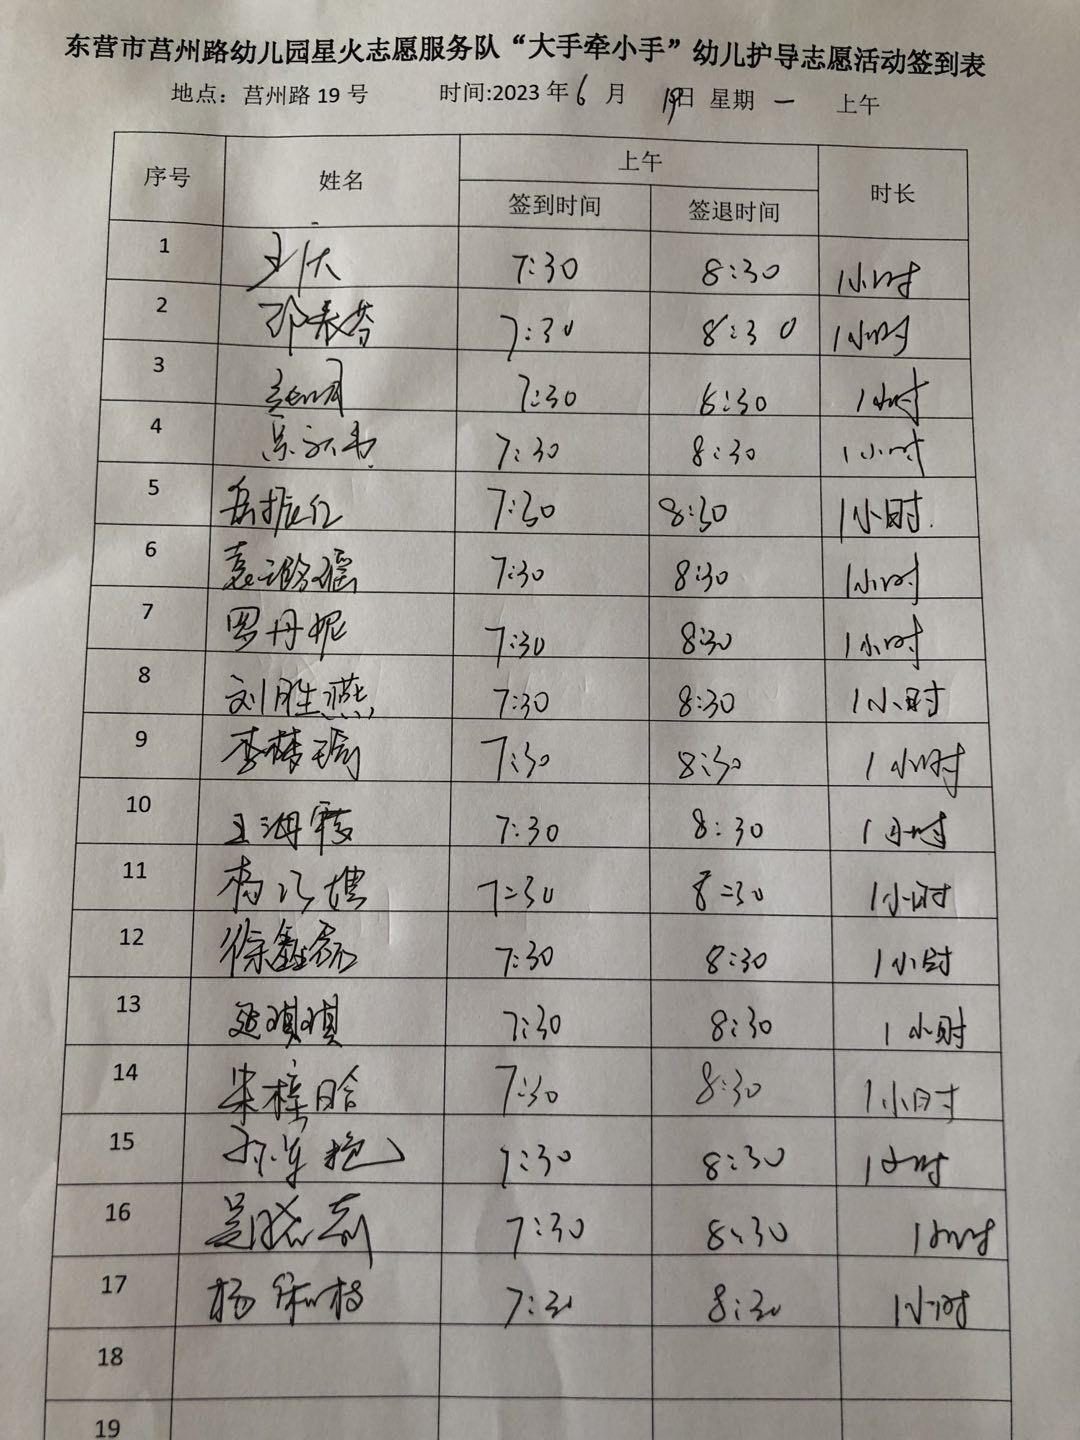 东营市莒州路幼儿园星火志愿服务队“大手牵小手”幼儿护导志愿活动签到表
地点：莒州路 19 号 时间:2023 年 6 月 19日 星期 一 上午
序号 姓名 上午 时长
签到时间 签退时间
1 7:30 8:30 1小时
2 7:30 8:30 1小时
3 7:30 8:30 1小时
4 7:30 8:30 1小时
5 岳振红 7:30 8:30 1小时.
6 7:30 8:30 1小时
7 罗丹妮 7:30 8:30 1小时
8 刘胜燕 7:30 8:30 1小时
9 李梦瑶 7:30 8:30 1小时
10 王海霞 7:30 8:30 1小时
11 7:30 8:30 1小时
12 徐鑫磊 7:30 8:30 1小时
13 延琪琪 7:30 8:30 1小时
14 朱梓晗 7:30 8:30 1小时
15 7:30 8:30 1小时
16 吴晓莉 7:30 8:30 1小时
17 7:30 8:30 1小时
18
19